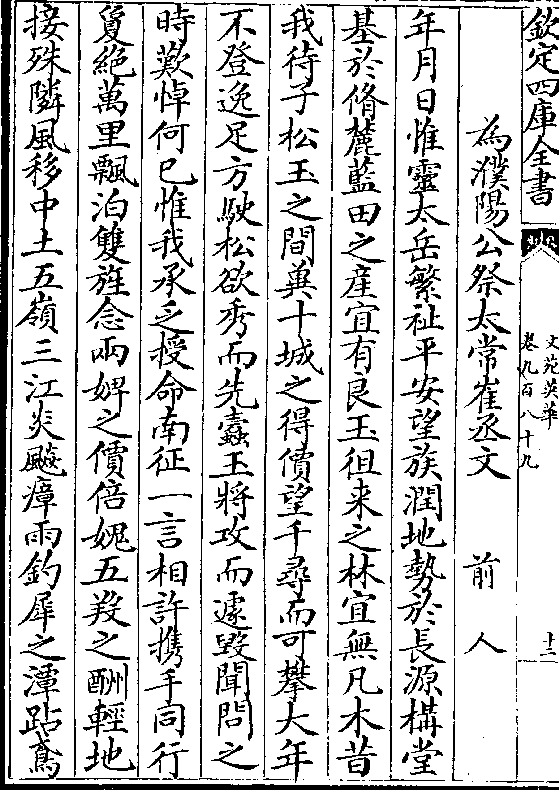 欽定四庫全書
文苑英華
卷九百八十九
十二
為濮陽公祭太常崔丞文　前人
年月日惟靈太岳繁祉平安望族潤地勢於長源構堂
基於脩麓藍田之産宜有良玉徂来之林宜無凡木昔
我待子松玉之間冀十城之得價望千尋而可攀大年
不登逸足方駛松欲秀而先蠹玉將攻而遽毀聞問之
時歎悼何已惟我承乏授命南征一言相許攜手同行
夐絶萬里飄泊雙旌念兩婢之價倍媿五羖之酬輕地
接殊隣風移中土五嶺三江炎飈瘴雨釣犀之潭跕鳶